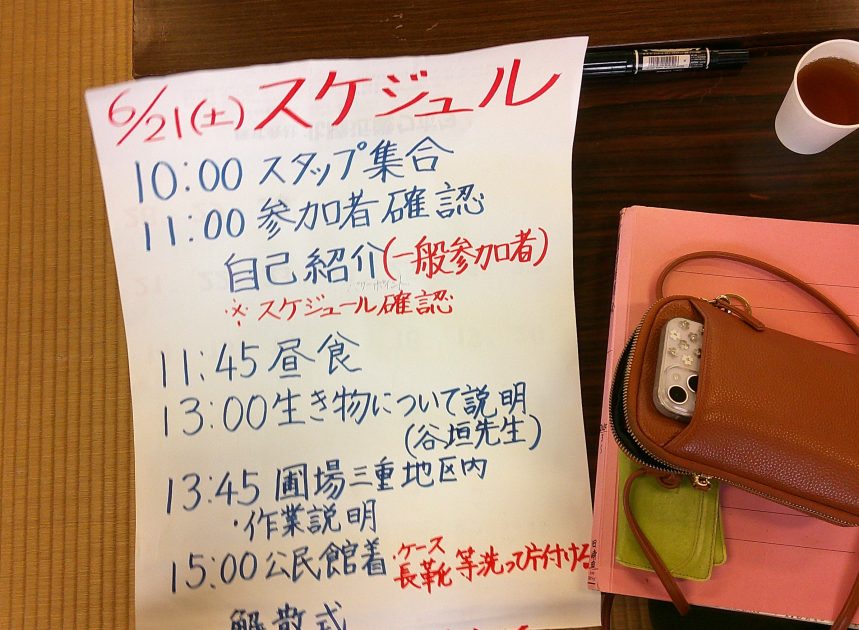 6/21(土)スケジュール
10:00 スタップ集合
11:00 参加者確認
自己紹介(一般参加者)
※スケジュール確認
11:45 昼食
13:00 生き物について説明
(谷垣先生)
13:45 圃場三重地区内
・作業説明
15:00 公民館着 ・ケース
長靴 等洗って片付ける
解散式